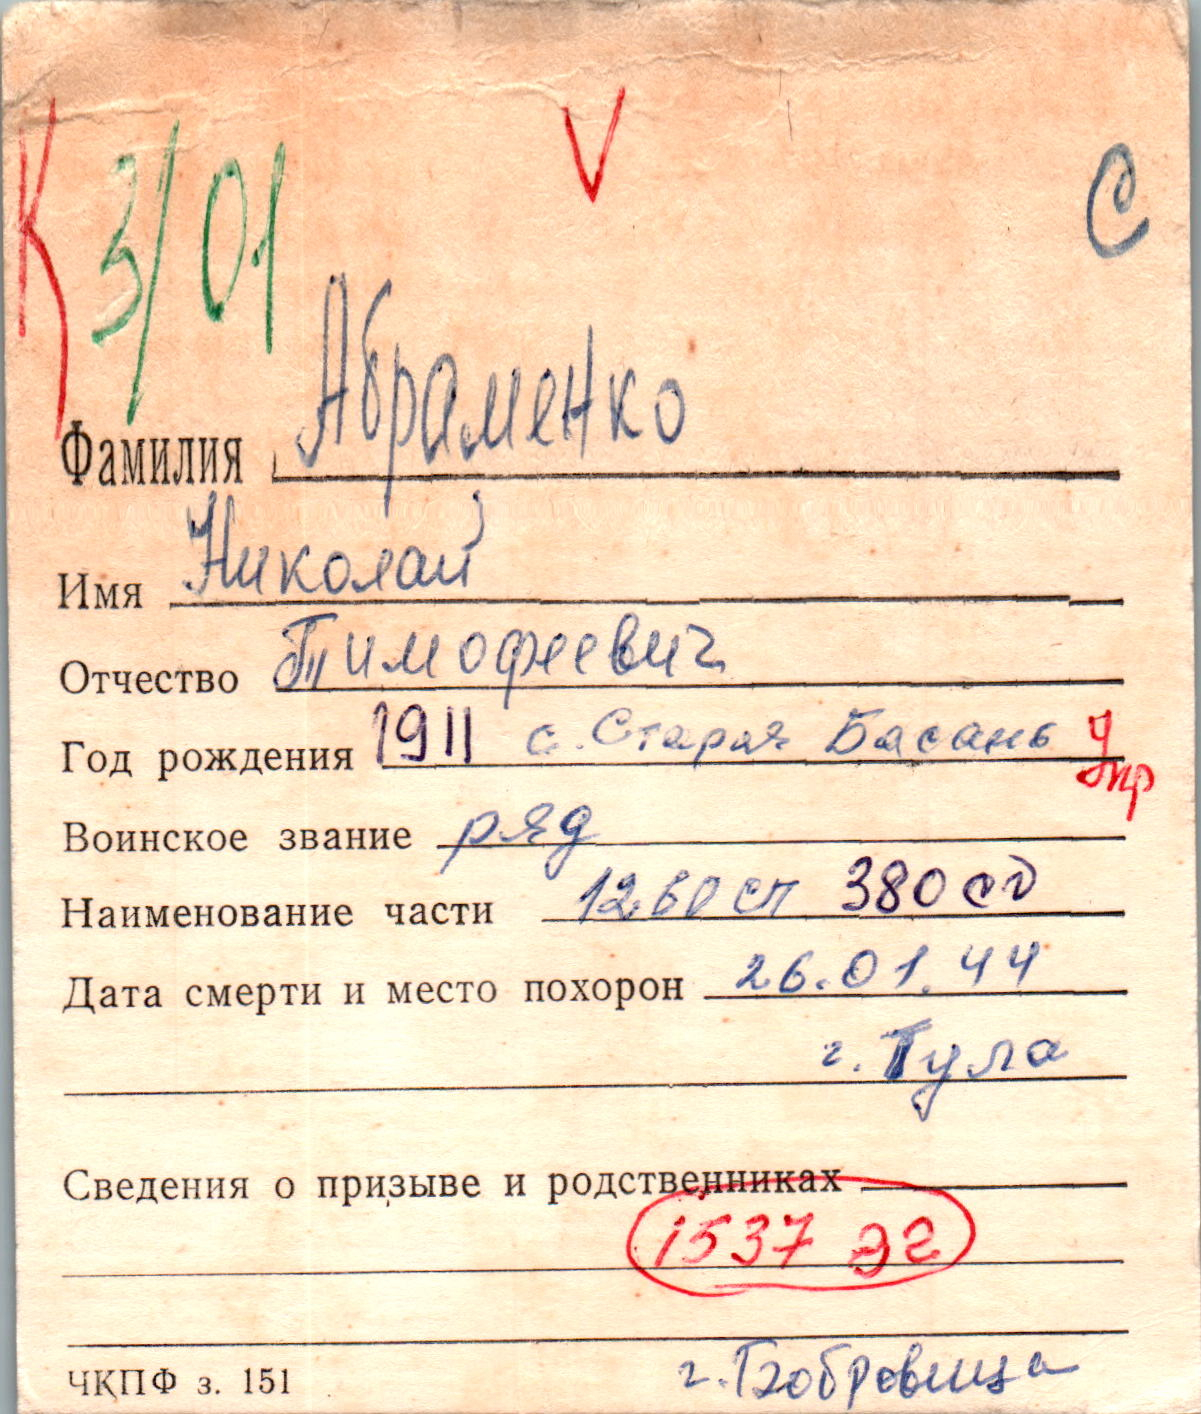 К 3/01 V С
Фамилия Абраменко
Имя Николай
Отчество Тимофеевич
Год рождения 1911 с. Старая Басань
Воинское звание ряд
Наименование части 1260 сп 380 сд
Дата смерти и место похорон 26.01.44
г. Тула
Сведения о призыве и родственниках
1537 эг
ЧКПФ з. 151 г. Бобровица